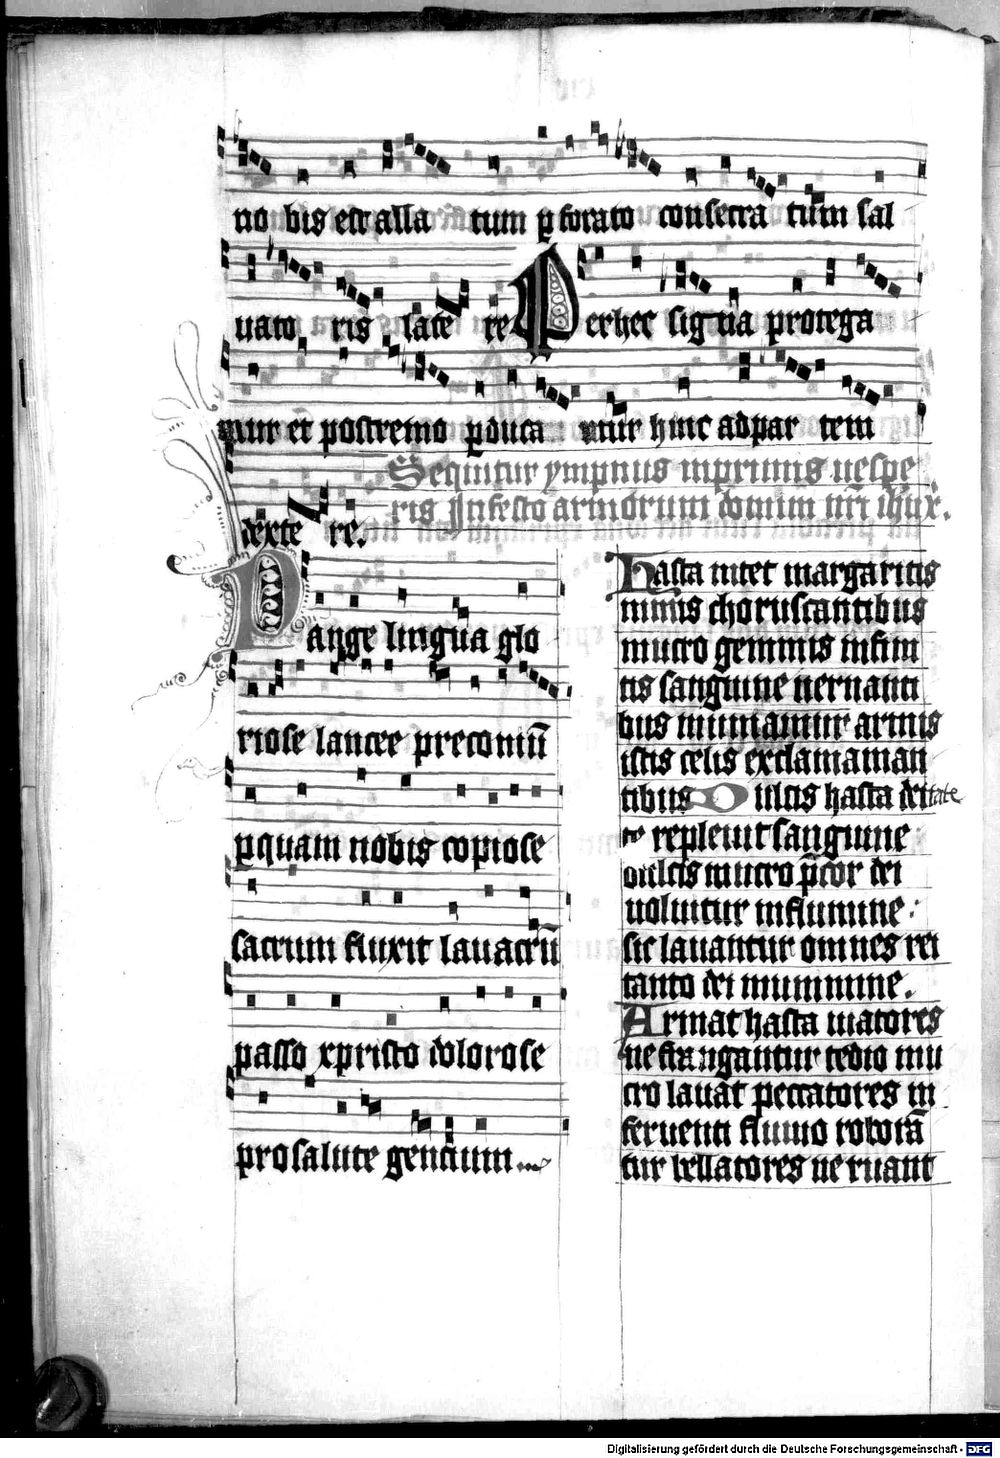 no bis est alla tum ꝑ forato consecra tum sal
uato ris late re Perhec signa protega
mur et postremo ꝑduca mur hinc adpar tem
Sequitur ympnus inprimis uespe
ris Infesto armorum domini nr̄i ihūx.
dexte re.
Pange lingua glo
riose lancee preconiū
ꝑquam nobis copiose
sacrum fluxit lauacrū
passo xpristo dolorose
pro salute gencium
Hasta intet margaritis
nimis choruscantibus
mucro gemmis infini
tis sanguine uernanti
bus muniamur armis
istis celis exclamaman
tibus Dulcis hasta deitate
repleuit sanguine
dulcis mucro p̄cor dei
uoluitur influmine :
sic lauantur omnes rei
tanto dei munimine.
Armat hasta uiatores
ne frangantur tedio mu
cro lauat peccatores in
feruenti fluuio roborā
tur bellatores ne ruant
Digitalisierung gefördert durch die Deutsche Forschungsgemeinschaft - DFG